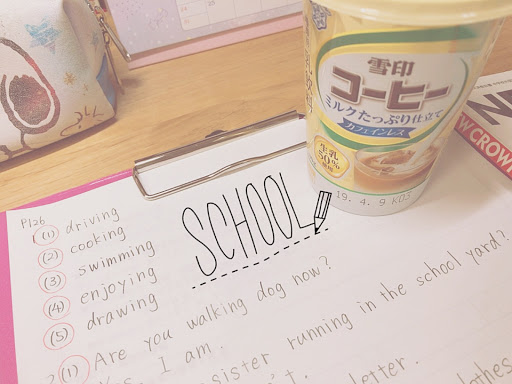 雪印
コーヒー
ミルクたっぷり仕立て
カフェインレス
生乳
50%
使用
19. 4. 9 K03
NE
W CROWN
SCHOOL
P126
(1) driving
(2) cooking
(3) swimming
(4) enjoying
(5) drawing
2 (1) Are you walking dog now?
Yes, I am.
sister running in the school yard?
letter.
clothes